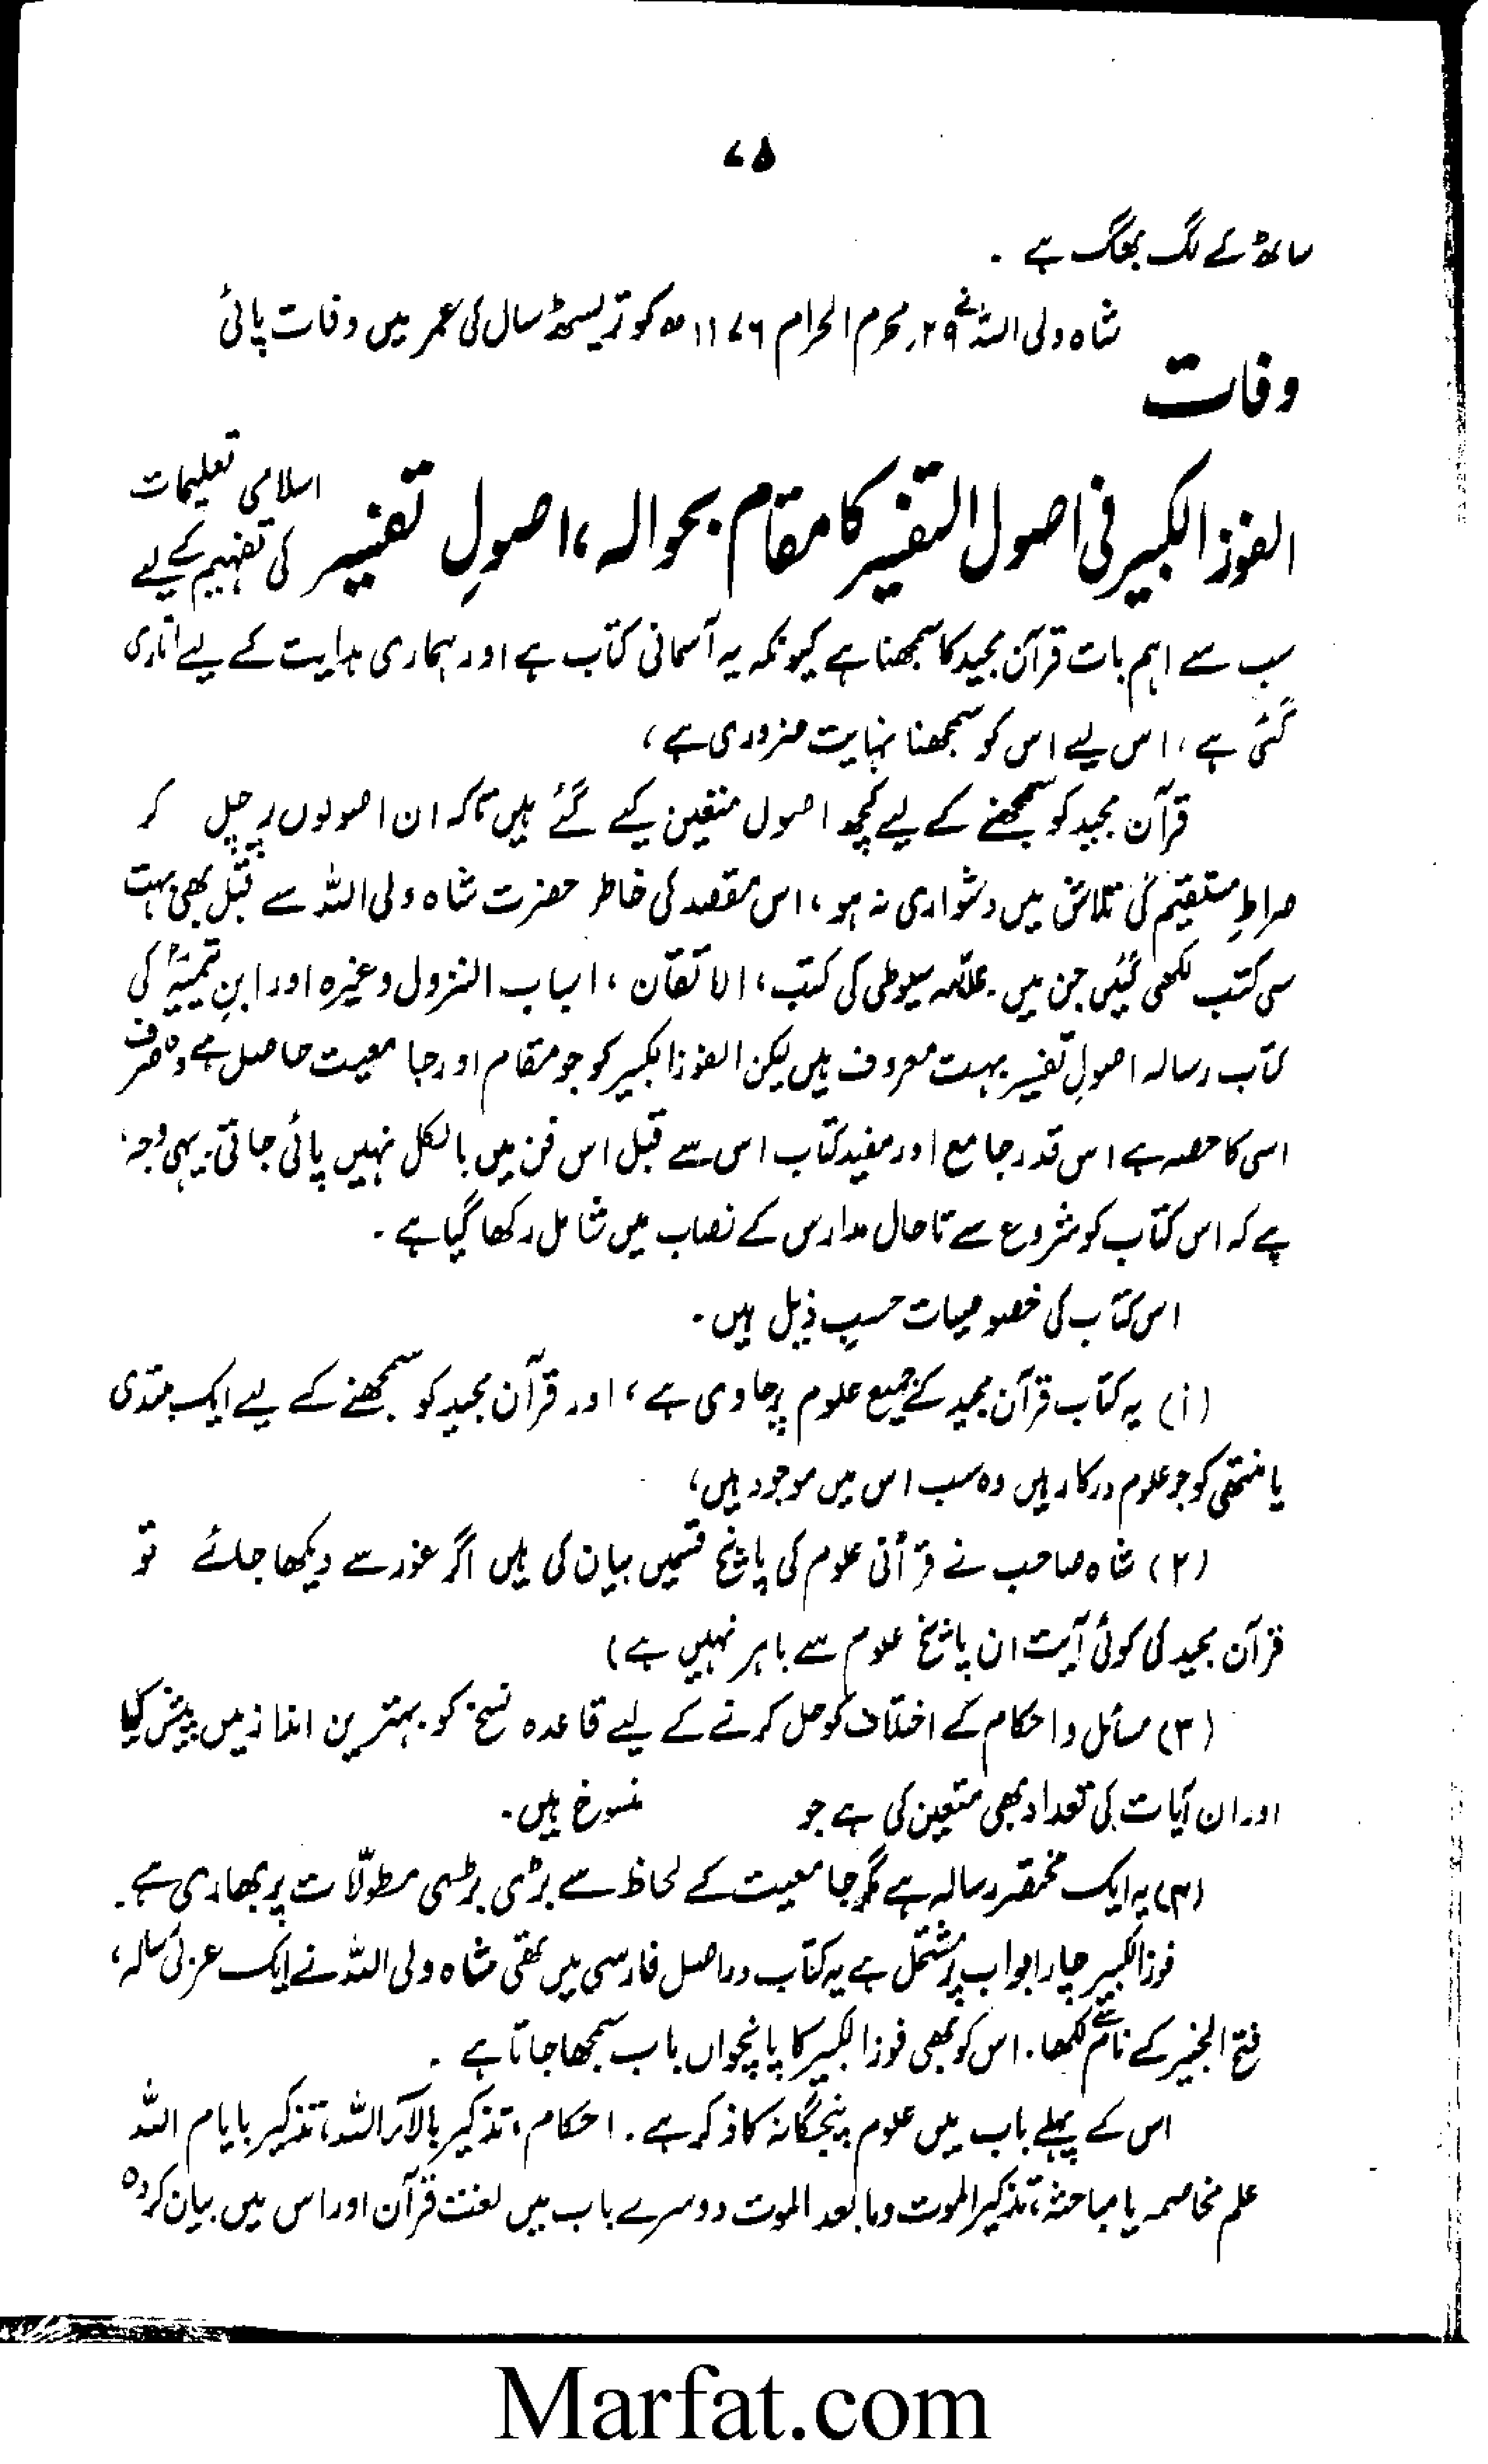 ۷۵
ساٹھ کے لگ بھگ ہے ۔
وفات شاہ ولی اللہؒ نے ۲۹؍ محرم الحرام ۱۱۷۶ھ کو تریسٹھ سال کی عمر میں وفات پائی
الفوز الکبیر فی اصول التفسیر کا مقام بحوالہ، اصولِ تفسیر اسلامی تعلیمات
کی تفہیم کے لیے
سب سے اہم بات قرآن مجید کا سمجھنا ہے کیونکہ یہ آسمانی کتاب ہے اور ہماری ہدایت کے لیے اتاری
گئی ہے، اس لیے اس کو سمجھنا نہایت ضروری ہے،
قرآن مجید کو سمجھنے کے لیے کچھ اصول متعین کیے گئے ہیں تاکہ ان اصولوں پر چل کر
صراطِ مستقیم کی تلاش میں دشواری نہ ہو، اس مقصد کی خاطر حضرت شاہ ولی اللہ سے قبل بھی بہت
سی کتب لکھی گئیں جن میں علامہ سیوطی کی کتب، الاتقان، اسباب النزول وغیرہ اور ابنِ تیمیہؒ کی
کتاب رسالہ اصولِ تفسیر بہت معروف ہیں لیکن الفوز الکبیر کو جو مقام اور جامعیت حاصل ہے وہ صرف
اسی کا حصہ ہے اس قدر جامع اور مفید کتاب اس سے قبل اس فن میں بالکل نہیں پائی جاتی۔ یہی وجہ
ہے کہ اس کتاب کو شروع سے تا حال مدارس کے نصاب میں شامل رکھا گیا ہے ۔
اس کتاب کی خصوصیات حسبِ ذیل ہیں ۔
(i) یہ کتاب قرآن مجید کے جمیع علوم پر حاوی ہے، اور قرآن مجید کو سمجھنے کے لیے ایک مبتدی
یا منتہی کو جو علوم درکار ہیں وہ سب اس میں موجود ہیں،
(۲) شاہ صاحب نے قرآنی علوم کی پانچ قسمیں بیان کی ہیں اگر غور سے دیکھا جائے تو
قرآن مجید کی کوئی آیت ان پانچ علوم سے باہر نہیں ہے)
(۳) مسائل و احکام کے اختلاف کو حل کرنے کے لیے قاعدہ نسخ کو بہترین انداز میں پیش کیا
اور ان آیات کی تعداد بھی متعین کی ہے جو منسوخ ہیں۔
(۴) یہ ایک مختصر رسالہ ہے مگر جامعیت کے لحاظ سے بڑی بڑی مطوّلات پر بھاری ہے ۔
فوز الکبیر چار ابواب پر مشتمل ہے یہ کتاب دراصل فارسی میں تھی شاہ ولی اللہ نے ایک عربی رسالہ،
فتح الخبیر کے نام سے لکھا۔ اس کو بھی فوز الکبیر کا پانچواں باب سمجھا جاتا ہے ۔
اس کے پہلے باب میں علوم پنجگانہ کا ذکر ہے ۔ احکام، تذکیر بالآء اللہ، تذکیر بایام اللہ
علم مخاصمہ یا مباحثہ، تذکیر الموت وما بعد الموت دوسرے باب میں لغت قرآن اور اس میں بیان کردہ
Marfat.com